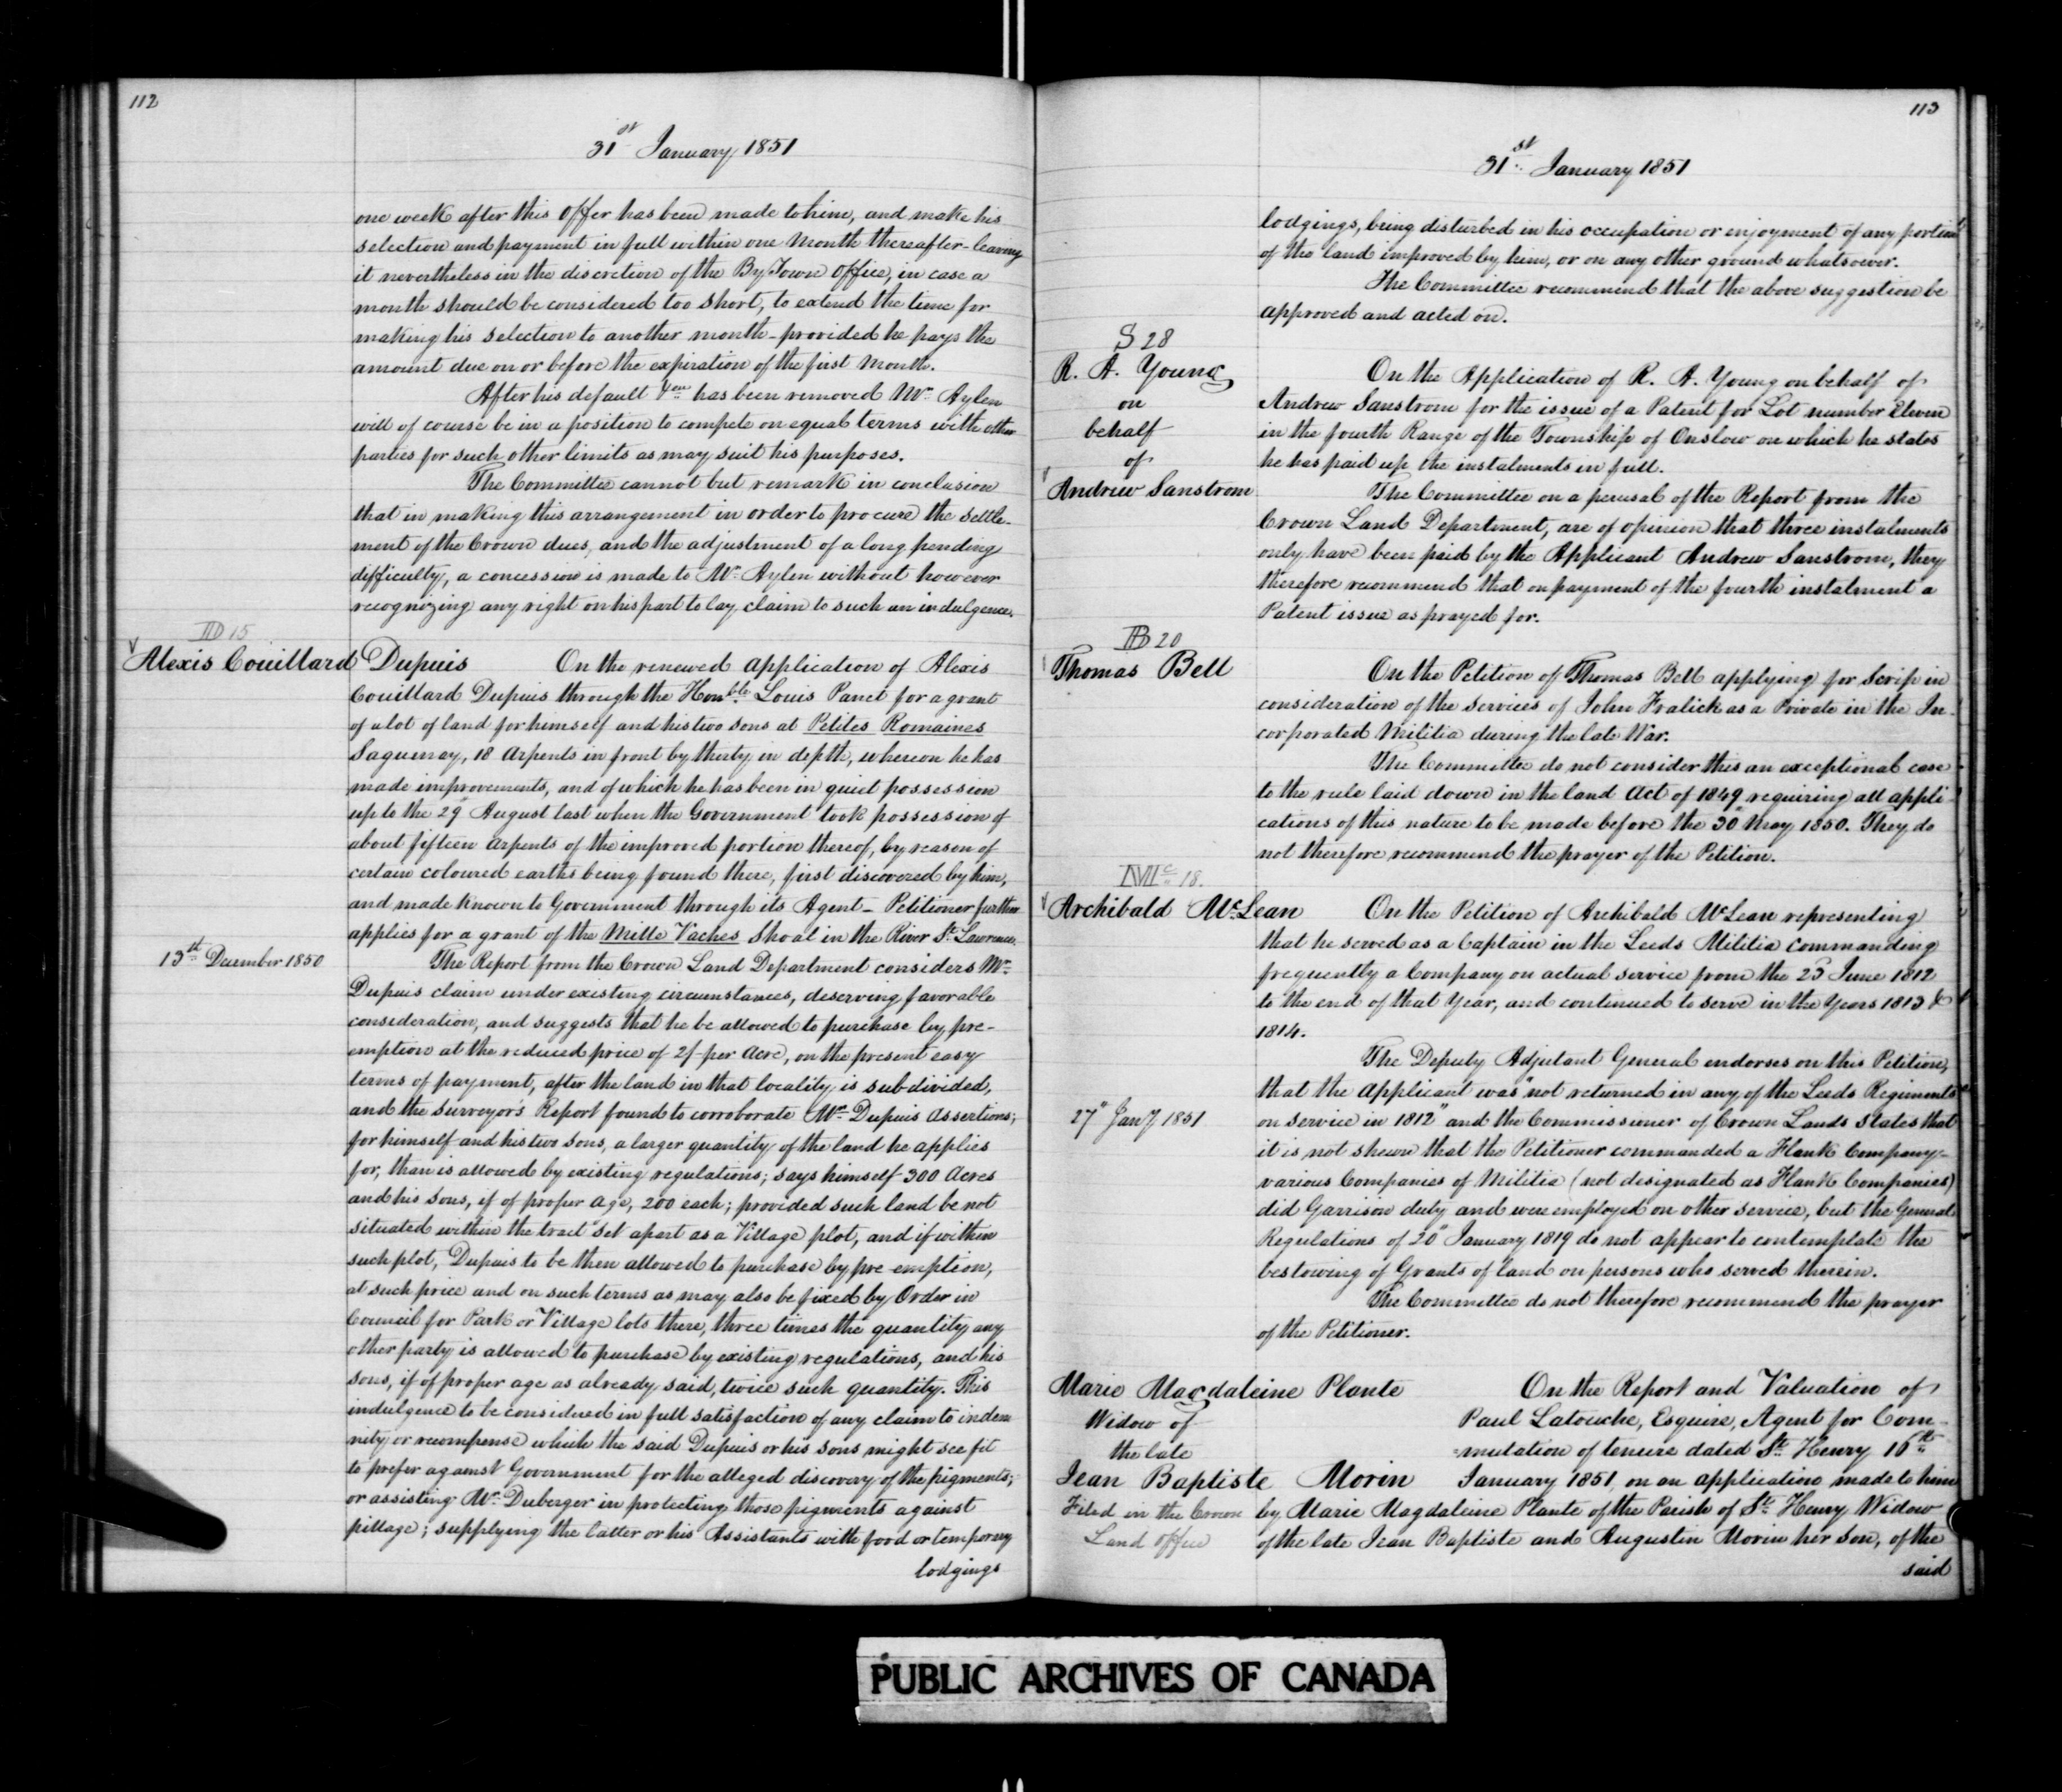 112
31st January 1851
one week after this offer has been made to him, and make his
selection and payment in full within one Month thereafter - leaving
it nevertheless in the discretion of the By Town Office, in case a
month should be considered too short, to extend the time for
making his selection to another month - provided he pays the
amount due on or before the expiration of the first Month.
After his default has been removed Mr. Aylen
will of course be in a position to compete on equal terms with other
parties for such other limits as may suit his purposes.
The Committee cannot but remark in conclusion
that in making this arrangement in order to procure the settle-
ment of the Crown dues, and the adjustment of a long pending
difficulty, a concession is made to Mr. Aylen without however
recognizing any right on his part to lay claim to such an indulgence.
D 15
Alexis Couillard Dupuis
On the renewed application of Alexis
Couillard Dupuis through the Honble. Louis Panet for a grant
of a lot of land for himself and his two sons at Petites Romaines
Saguenay, 18 Arpents in front by thirty in depth, whereon he has
made improvements, and of which he has been in quiet possession
up to the 29 August last when the Government took possession of
about fifteen Arpents of the improved portion thereof, by reason of
certain coloured earths being found there, first discovered by him,
and made known to Government through its Agent - Petitioner further
applies for a grant of the Mille Vaches Shoal in the River St. Lawrence.
13th December 1850
The Report from the Crown Land Department considers Mr.
Dupuis claim under existing circumstances, deserving favorable
consideration, and suggests that he be allowed to purchase by pre-
emption at the reduced price of 2/- per Acre, on the present easy
terms of payment, after the land in that locality is subdivided,
and the Surveyor's Report found to corroborate Mr. Dupuis assertions;
for himself and his two sons, a larger quantity of the land he applies
for, than is allowed by existing regulations; says himself 300 Acres
and his sons, if of proper age, 200 each; provided such land be not
situated within the tract set apart as a Village plot, and if within
such plot, Dupuis to be then allowed to purchase by pre-emption,
at such price and on such terms as may also be fixed by Order in
Council for Park or Village lots there, three times the quantity any
other party is allowed to purchase by existing regulations, and his
sons, if of proper age as already said, twice such quantity. This
indulgence to be considered in full satisfaction of any claim to indem
nity or recompense which the said Dupuis or his sons might see fit
to prefer against Government for the alleged discovery of the pigments;
or assisting Mr. Duberger in protecting those pigments against
pillage; supplying the latter or his Assistants with food or temporary
lodgings
113
31st January 1851
lodgings, being disturbed in his occupation or enjoyment of any portion
of the land improved by him, or on any other ground whatsoever.
The Committee recommend that the above suggestion be
approved and acted on.
S 28
R. A. Young
on
behalf
of
Andrew Sanstrom
On the Application of R. A. Young on behalf of
Andrew Sanstrom for the issue of a Patent for Lot number Eleven
in the fourth Range of the Township of Onslow on which he states
he has paid up the instalments in full.
The Committee on a perusal of the Report from the
Crown Land Department, are of opinion that three instalments
only have been paid by the Applicant Andrew Sanstrom, they
therefore recommend that on payment of the fourth instalment a
Patent issue as prayed for.
B 20
Thomas Bell
On the Petition of Thomas Bell applying for Scrip in
consideration of the services of John Fralick as a Private in the In-
corporated Militia during the late War.
The Committee do not consider this an exceptional case
to the rule laid down in the land Act of 1849 requiring all appli-
cations of this nature to be made before the 30 May 1850. They do
not therefore recommend the prayer of the Petition.
Mc 18.
Archibald McLean
On the Petition of Archibald McLean representing
that he served as a Captain in the Leeds Militia commanding
frequently a Company on actual service from the 23 June 1812
to the end of that Year, and continued to serve in the Years 1813 &
1814.
The Deputy Adjutant General endorses on this Petition,
that the Applicant was "not returned in any of the Leeds Regiments
27" Jany 1851
on service in 1812" and the Commissioner of Crown Lands states that
it is not shewn that the Petitioner commanded a Flank Company -
various Companies of Militia (not designated as Flank Companies)
did Garrison duty and were employed on other service, but the General
Regulations of 20" January 1819 do not appear to contemplate the
bestowing of Grants of land on persons who served therein.
The Committee do not therefore recommend the prayer
of the Petitioner.
Marie Magdaleine Plante
Widow of
the late
Jean Baptiste Morin
Filed in the Crown
Land Office
On the Report and Valuation of
Paul Latouche, Esquire, Agent for Com-
-mutation of tenure dated St. Henry 16th
January 1851, on an application made to him
by Marie Magdaleine Plante of the Parish of St. Henry Widow
of the late Jean Baptiste and Augustin Morin her son, of the
said
PUBLIC ARCHIVES OF CANADA